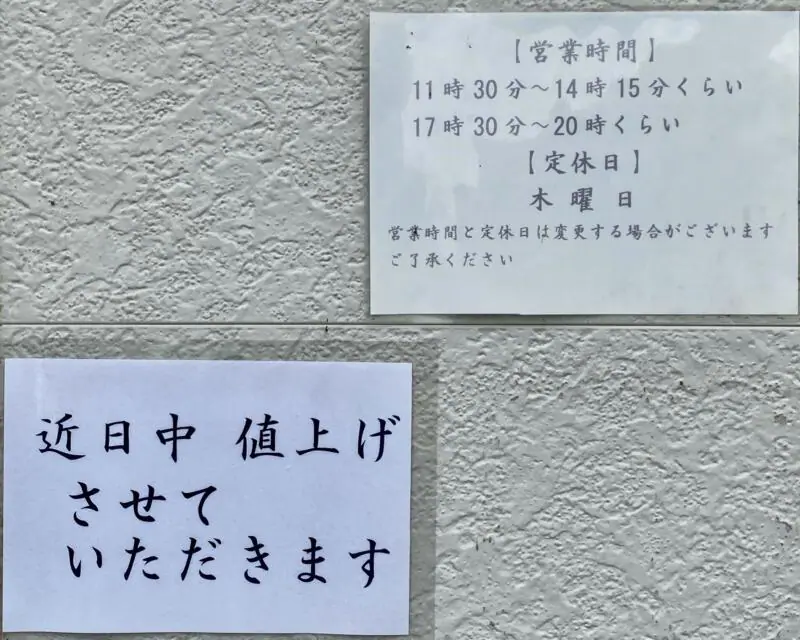 【営業時間】
11時30分～14時15分くらい
17時30分～20時くらい
【定休日】
木曜日
営業時間と定休日は変更する場合がございます
ご了承ください
近日中 値上げ
させて
いただきます